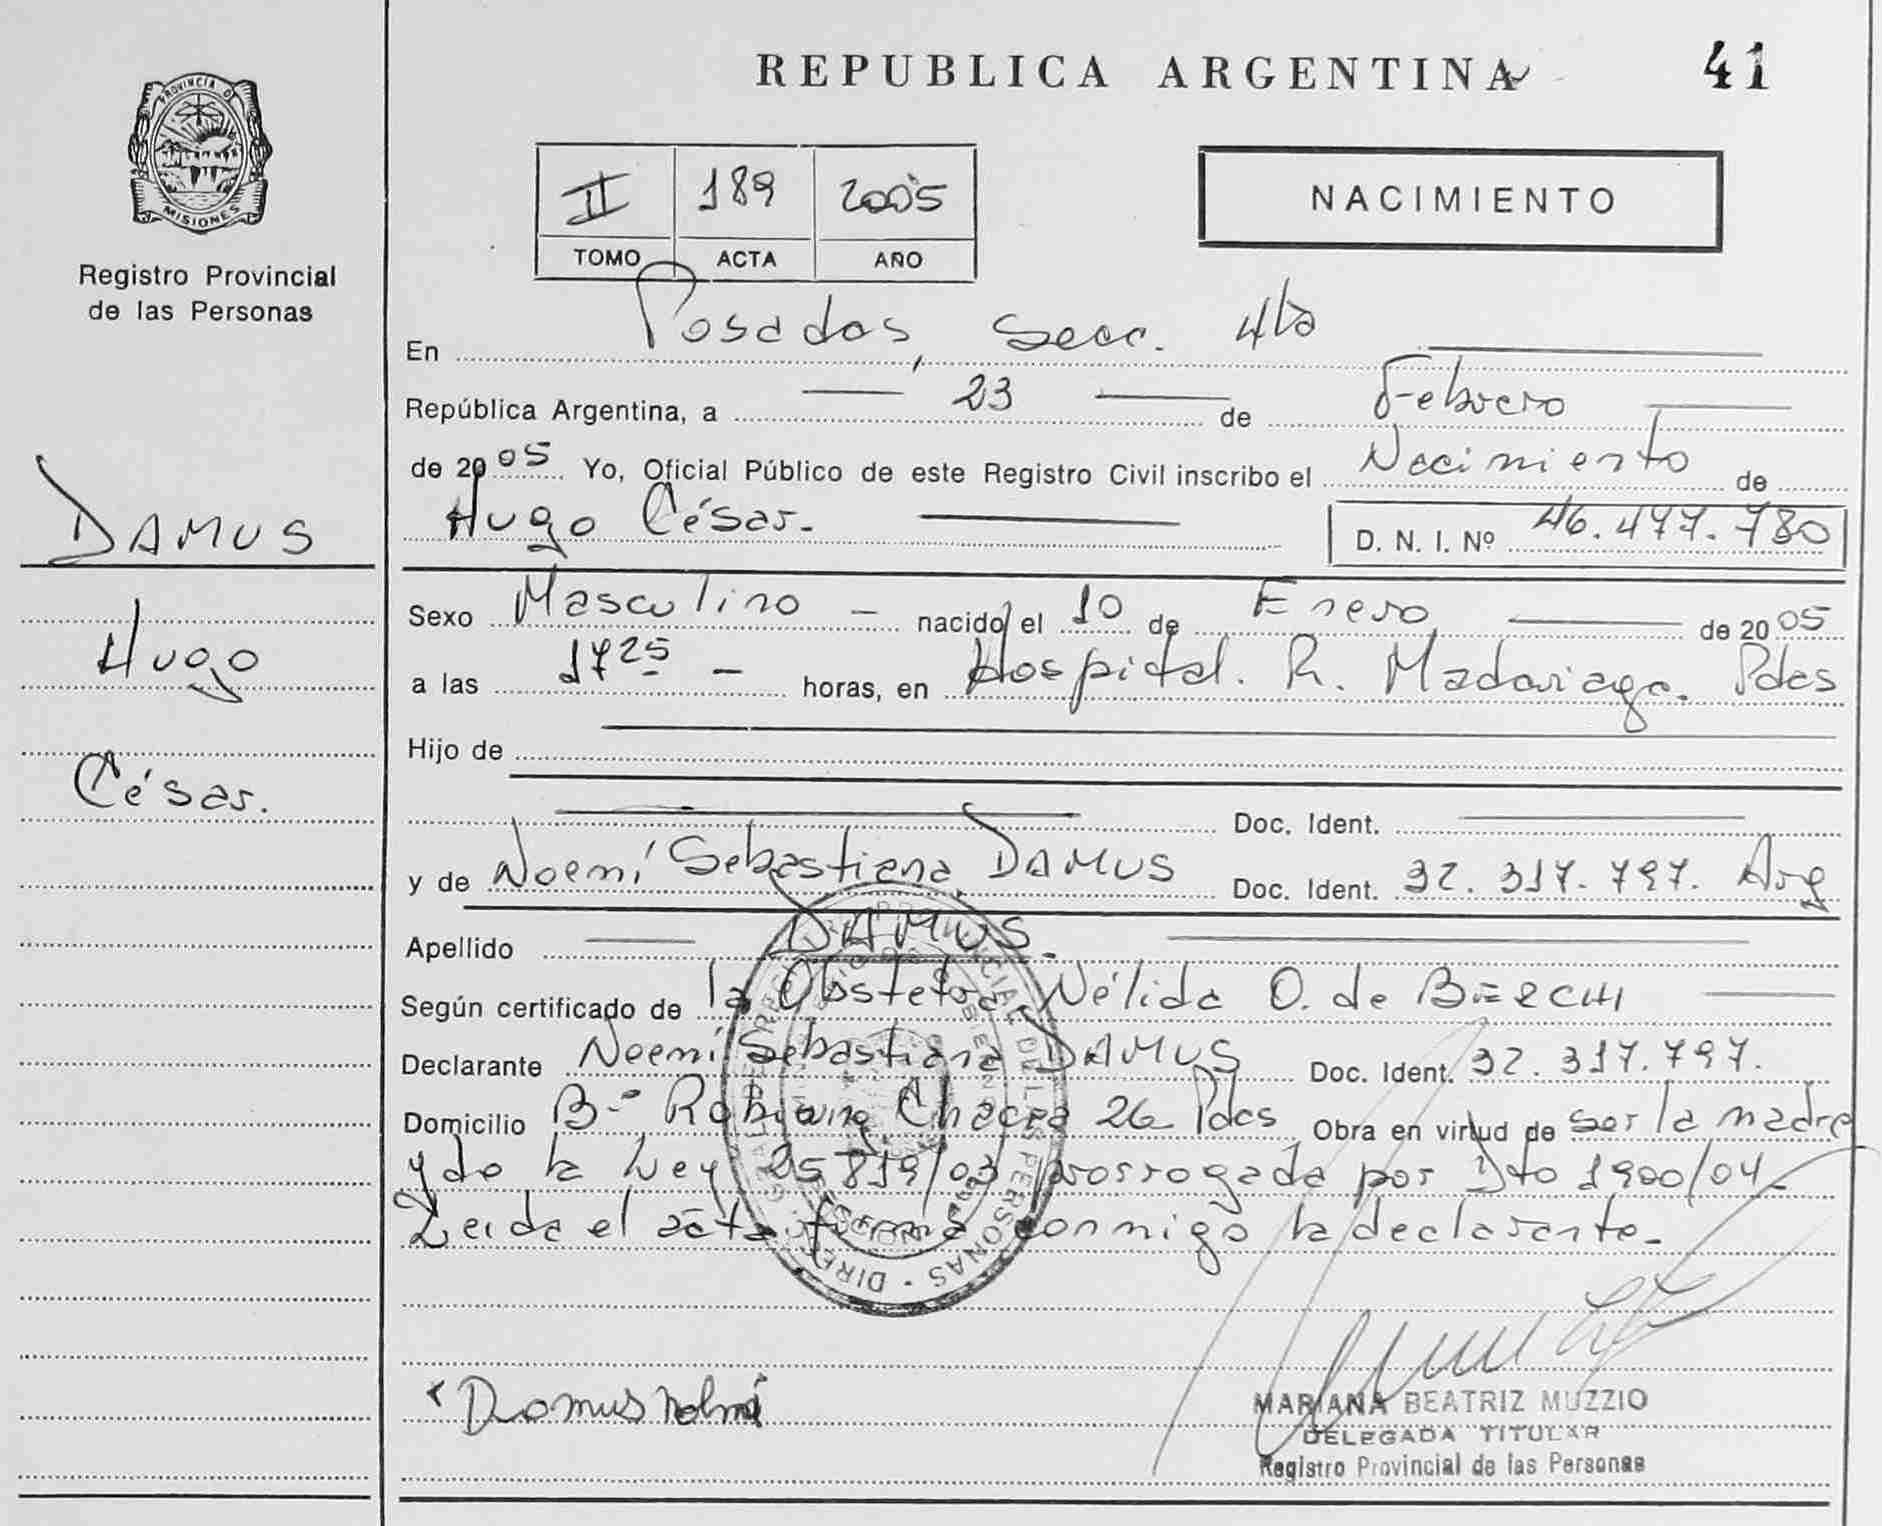 REPUBLICA ARGENTINA
41
PROVINCIA DE
MISIONES
Registro Provincial
de las Personas
II 189 2005
TOMO ACTA AÑO
NACIMIENTO
En Posadas, Secc. 4ta
República Argentina, a 23 de Febrero
de 2005 Yo, Oficial Público de este Registro Civil inscribo el Nacimiento de
Hugo César.
D. N. I. Nº 46.477.780
DAMUS
Hugo
César.
Sexo Masculino - nacido el 10 de Enero de 2005
a las 1725 - horas, en Hospital. R. Madariaga. Pdas
Hijo de
Doc. Ident.
y de Noemí Sebastiana DAMUS Doc. Ident. 32.317.797. Arg
Apellido DAMUS.
Según certificado de la Obstetra Nélida O. de
Declarante Noemí Sebastiana DAMUS Doc. Ident. 32.317.797.
Domicilio Bº Chacra 26 Pdas Obra en virtud de ser la madre
y de la Ley 25819/03 prorrogada por Dto 1900/04-
Leida el acta firma conmigo la declarante.
Damus
MARIANA BEATRIZ MUZZIO
DELEGADA TITULAR
Registro Provincial de las Personas